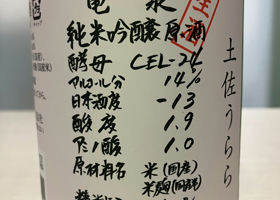 亀泉
純米吟醸原酒
酵母 CEL-24
アルコール分 14%
日本酒度 -13
酸度 1.9
アミノ酸 1.0
原材料名 米(国産)
米麹(国産米)
土佐うらら
生酒